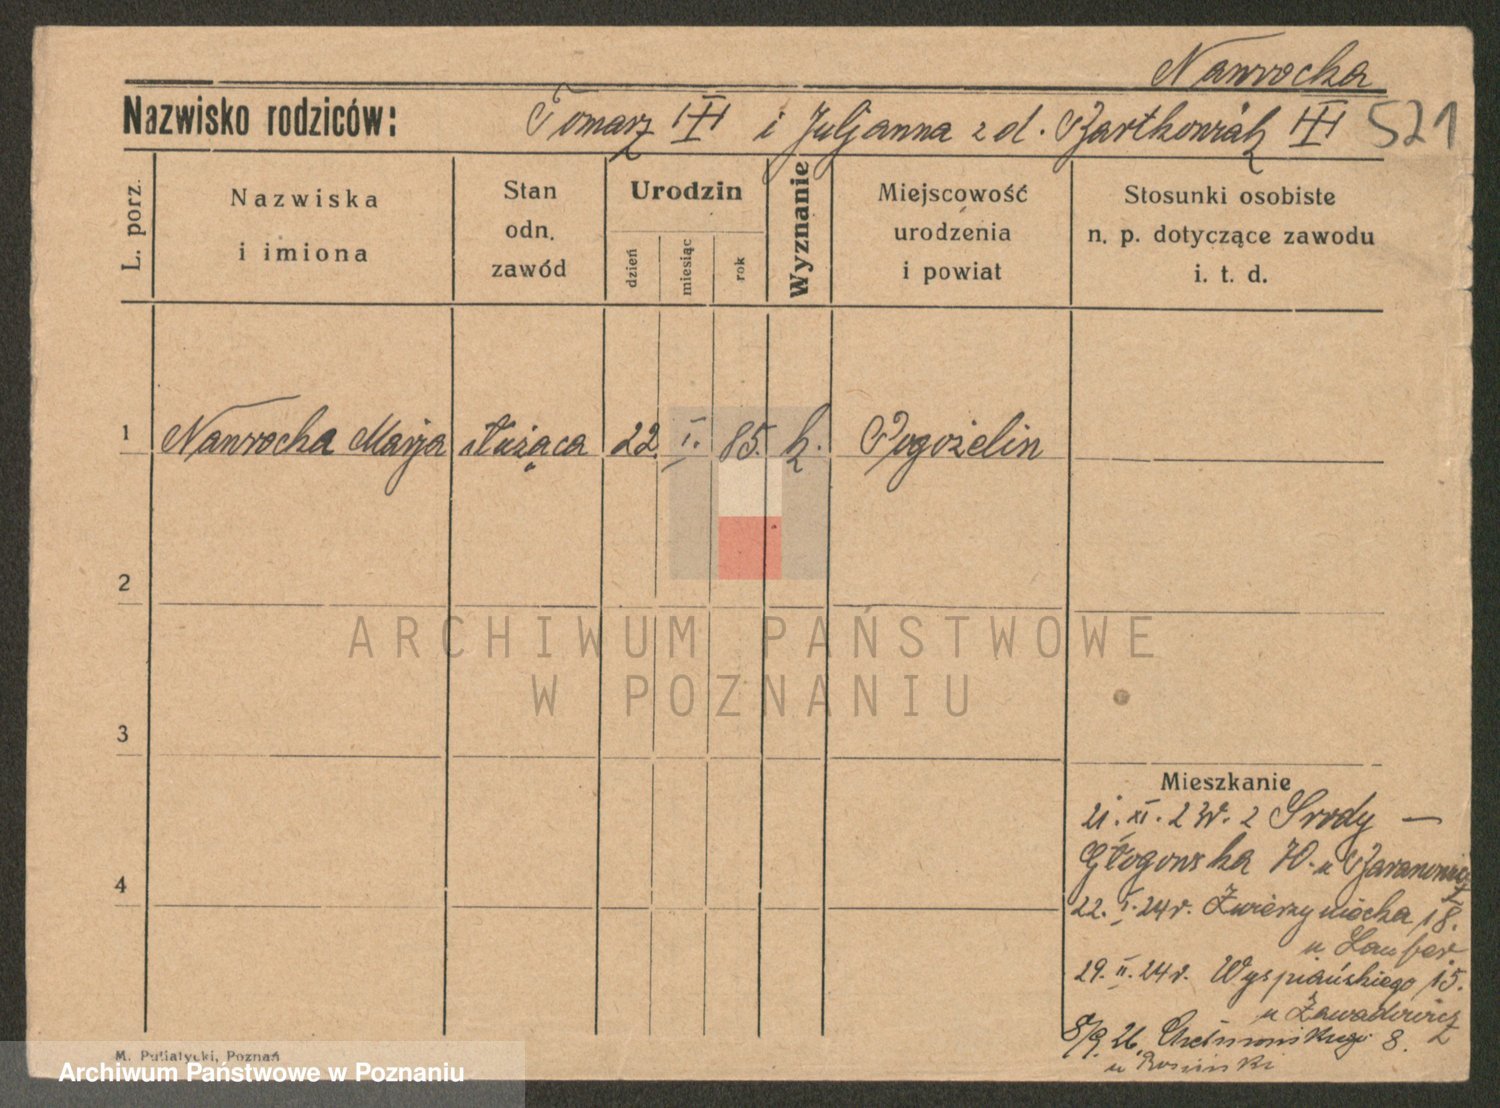 Nawrocka
Nazwisko rodziców: Tomasz i Juljanna z d. Bartkowiak 521
L. porz.
Nazwiska
i imiona
Stan
odn.
zawód
Urodzin
dzień
miesiąc
rok
Wyznanie
Miejscowość
urodzenia
i powiat
Stosunki osobiste
n. p. dotyczące zawodu
i. t. d.
1 Nawrocka Marja służąca 22. I. 85. k. Pogożelin
2
ARCHIWUM PAŃSTWOWE
W POZNANIU
3
Mieszkanie
21. XI. 23r. z Środy —
Głogowska 70. u Baranowicz
4
22. I. 24r. Zwierzyniecka 18.
u Laufer
29. II. 24r. Wyspiańskiego 15.
u Zawadowicz
8/9. 26. Chełmońskiego 8.
u Rosiński
M. Putiatycki, Poznań
Archiwum Państwowe w Poznaniu